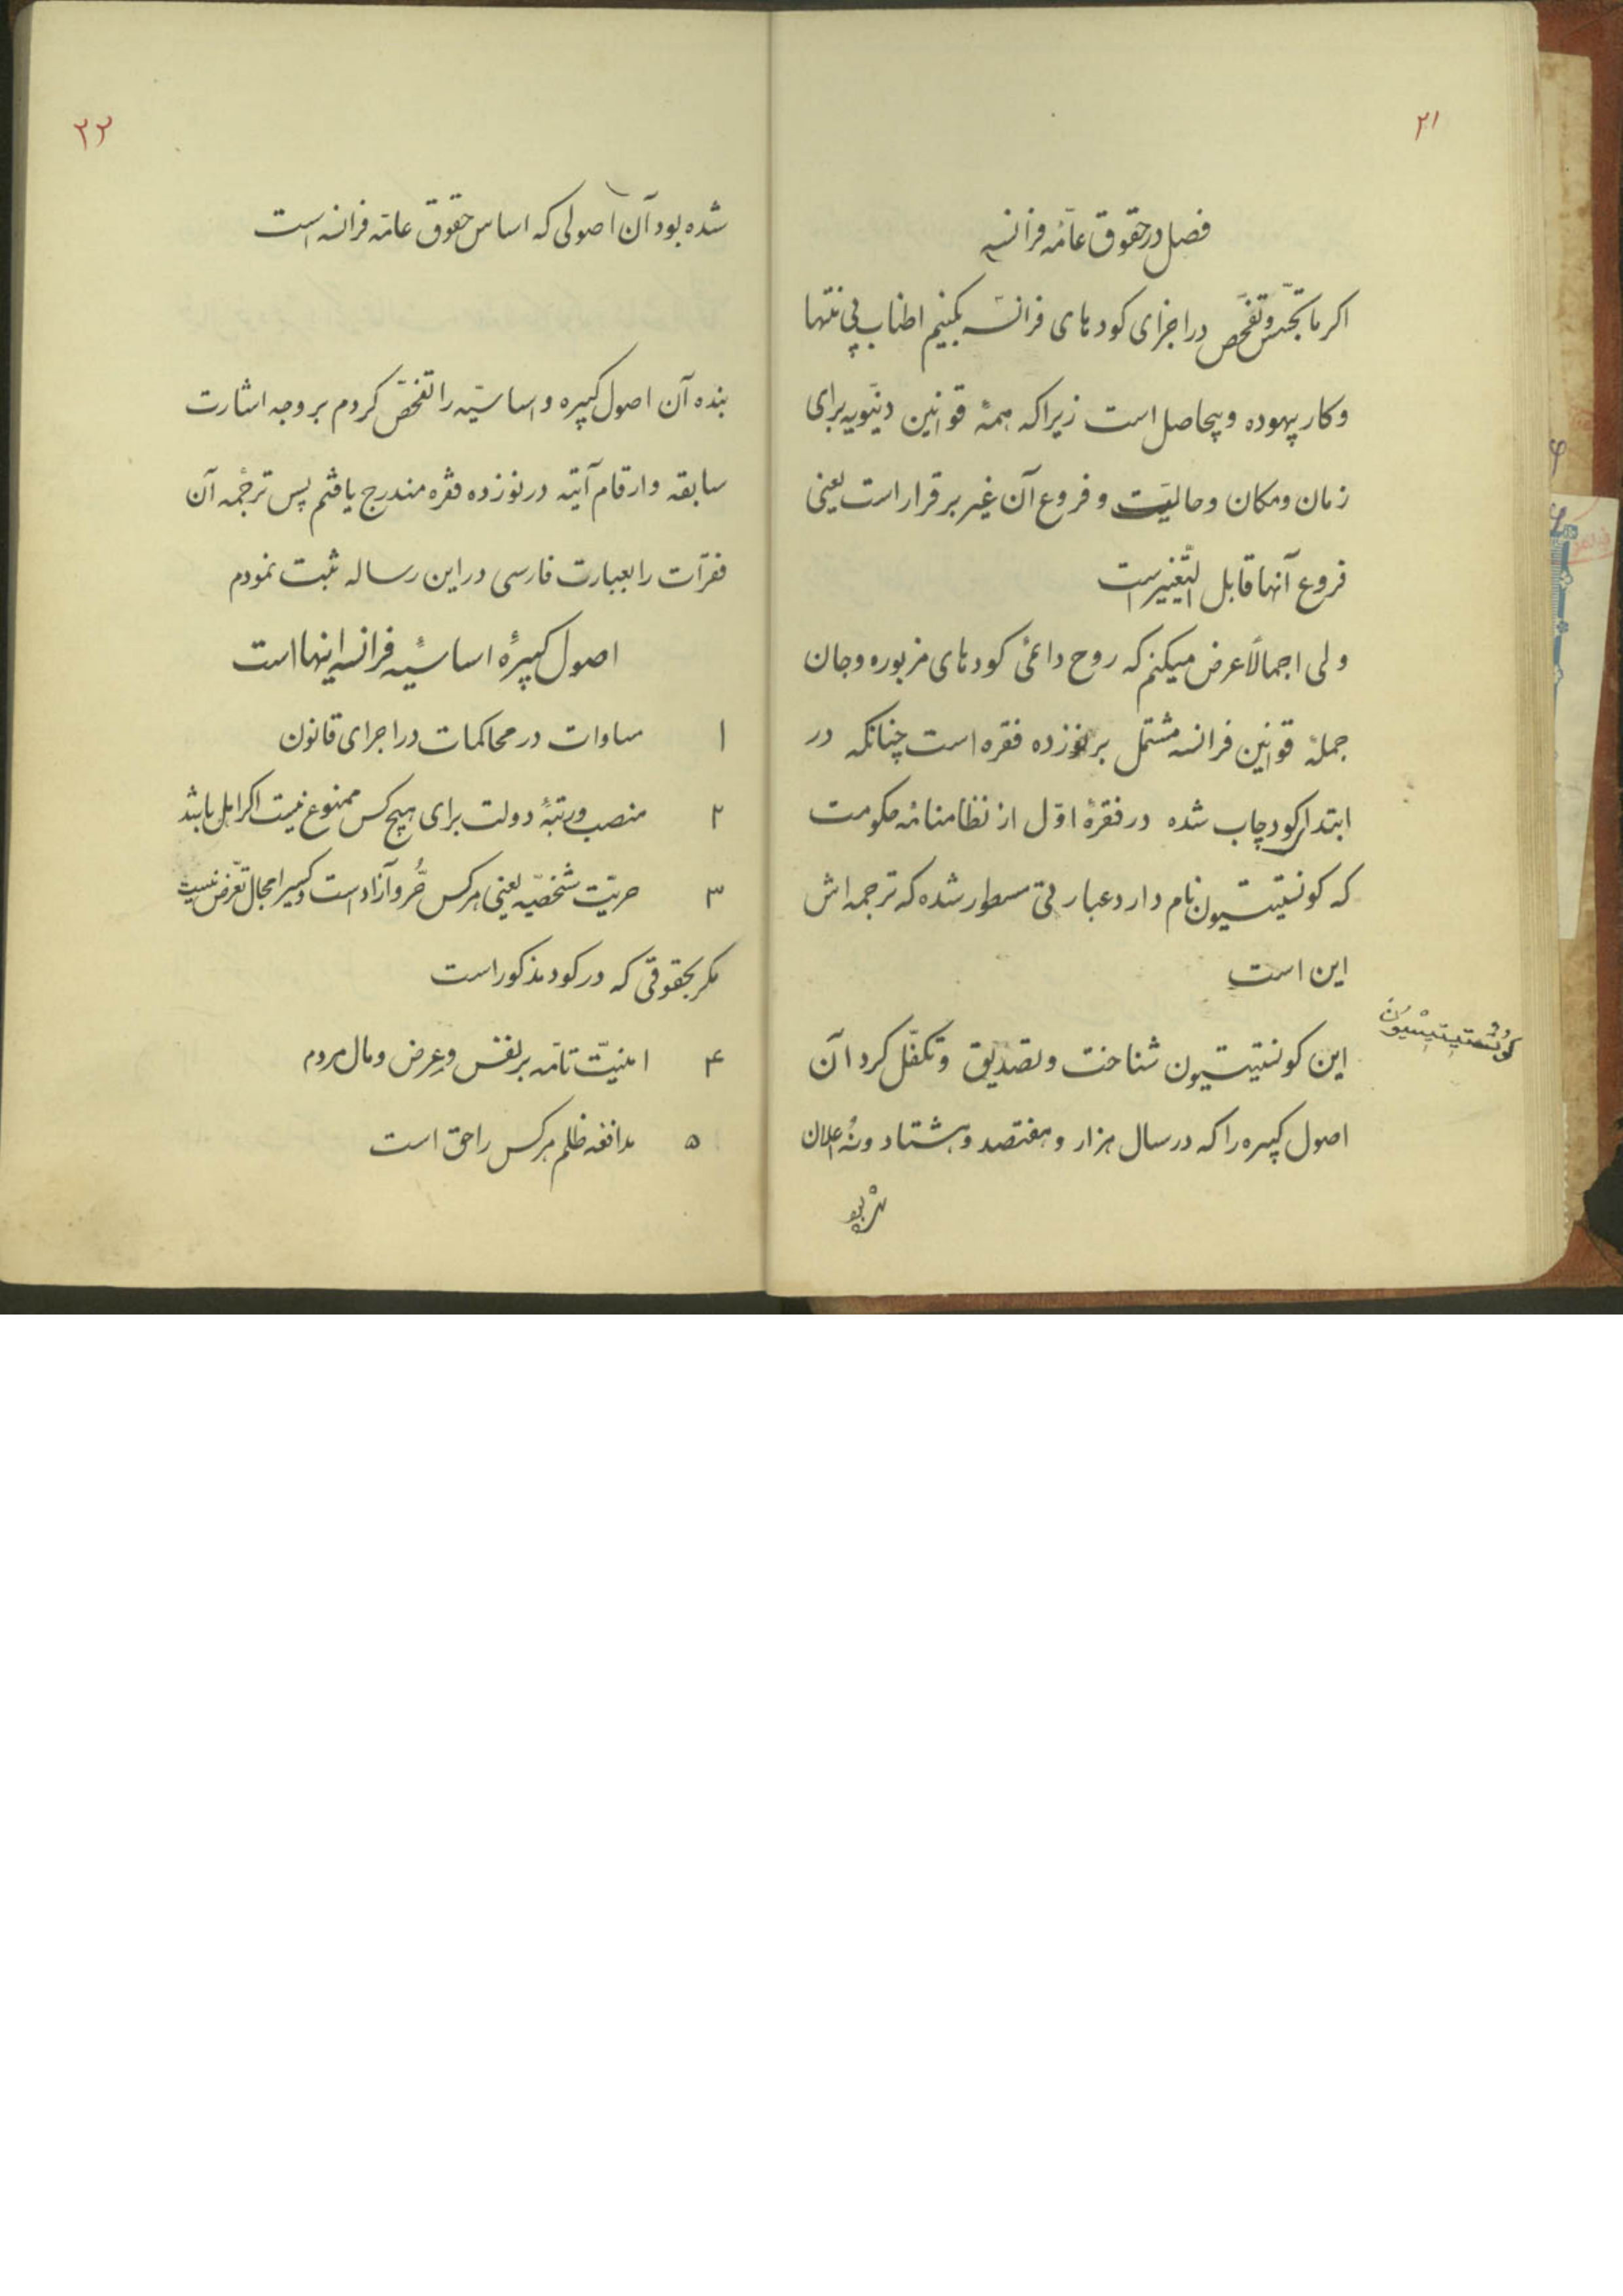 ۲۱
فصل در حقوق عامّهٔ فرانسه
اکر ما تجسّس و تفحّص در اجزای کودهای فرانسه بکنیم اطناب بی منتها
و کار بیهوده و بیحاصل است زیرا که همهٔ قوانین دنیّویه برای
زمان و مکان و حالیّت و فروع آن غیر برقرار است یعنی
فروع آنها قابل التّغییر است
ولی اجمالاً عرض میکنم که روح دائمیٔ کودهای مزبوره و جان
جملهٔ قوانین فرانسه مشتمل بر نوزده فقره است چنانکه در
ابتدای کود چاپ شده در فقرهٔ اوّل از نظامنامهٔ حکومت
که کونستیتسیون نام دارد عبارتی مسطور شده که ترجمه‌اش
این است
کونستیتیسیون
این کونستیتسیون شناخت و تصدیق و تکفّل کرد آن
اصول کبیره را که در سال هزار و هفتصد و هشتاد و نُه اعلان
شده بود
۲۲
شده بود آن اصولی که اساس حقوق عامّه فرانسه است
بنده آن اصول کبیره و اساسیّه را تفحّص کردم بر وجه اشارت
سابقه و ارقام آتیه در نوزده فقره مندرج یافتم پس ترجمهٔ آن
فقرات را بعبارت فارسی در این رساله ثبت نمودم
اصول کبیرهٔ اساسیّهٔ فرانسه اینها است
۱ مساوات در محاکمات در اجرای قانون
۲ منصب و رتبهٔ دولت برای هیچ کس ممنوع نیست اکر اهل باشد
۳ حریّت شخصیّه یعنی هر کس حُر و آزاد است و کسیرا مجال تعرّض نیست
مکر بحقوقی که در کود مذکور است
۴ امنیّت تامّه بر نفس و عِرض و مال مردم
۵ مدافعه ظلم هر کس را حق است